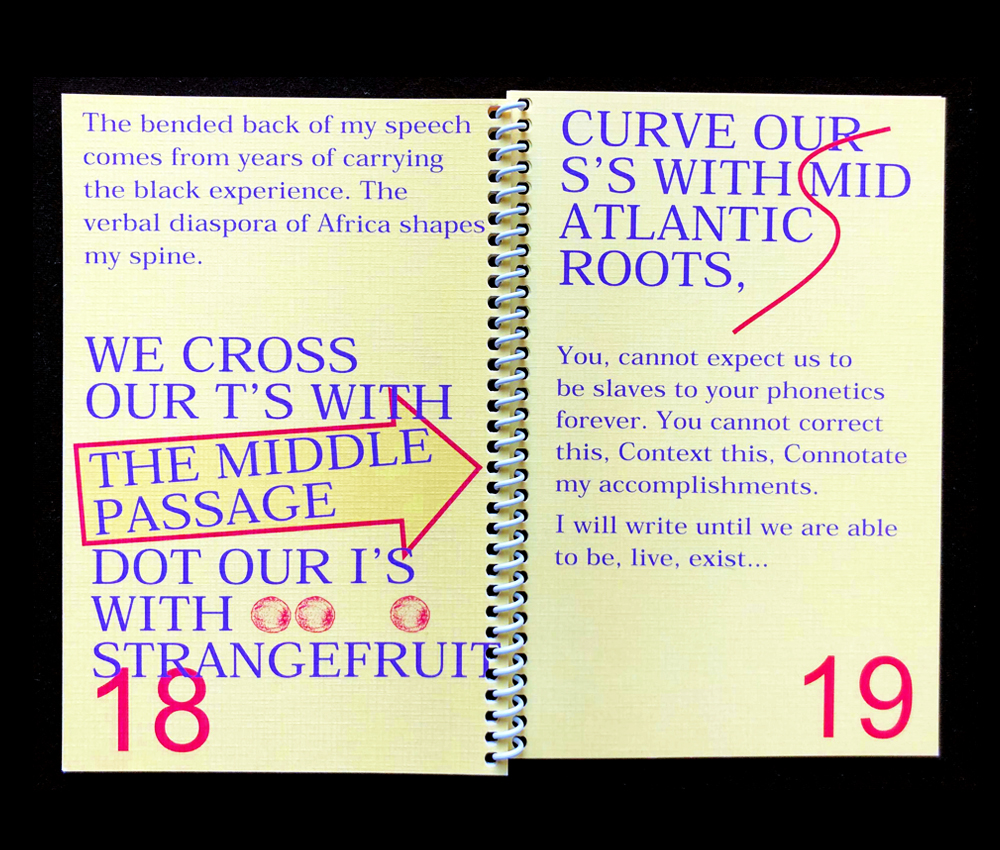 The bended back of my speech
comes from years of carrying
the black experience. The
verbal diaspora of Africa shapes
my spine.
WE CROSS
OUR T'S WITH
THE MIDDLE
PASSAGE
DOT OUR I'S
WITH
STRANGEFRUIT
18
CURVE OUR
S'S WITH MID
ATLANTIC
ROOTS,
You, cannot expect us to
be slaves to your phonetics
forever. You cannot correct
this, Context this, Connotate
my accomplishments.
I will write until we are able
to be, live, exist...
19